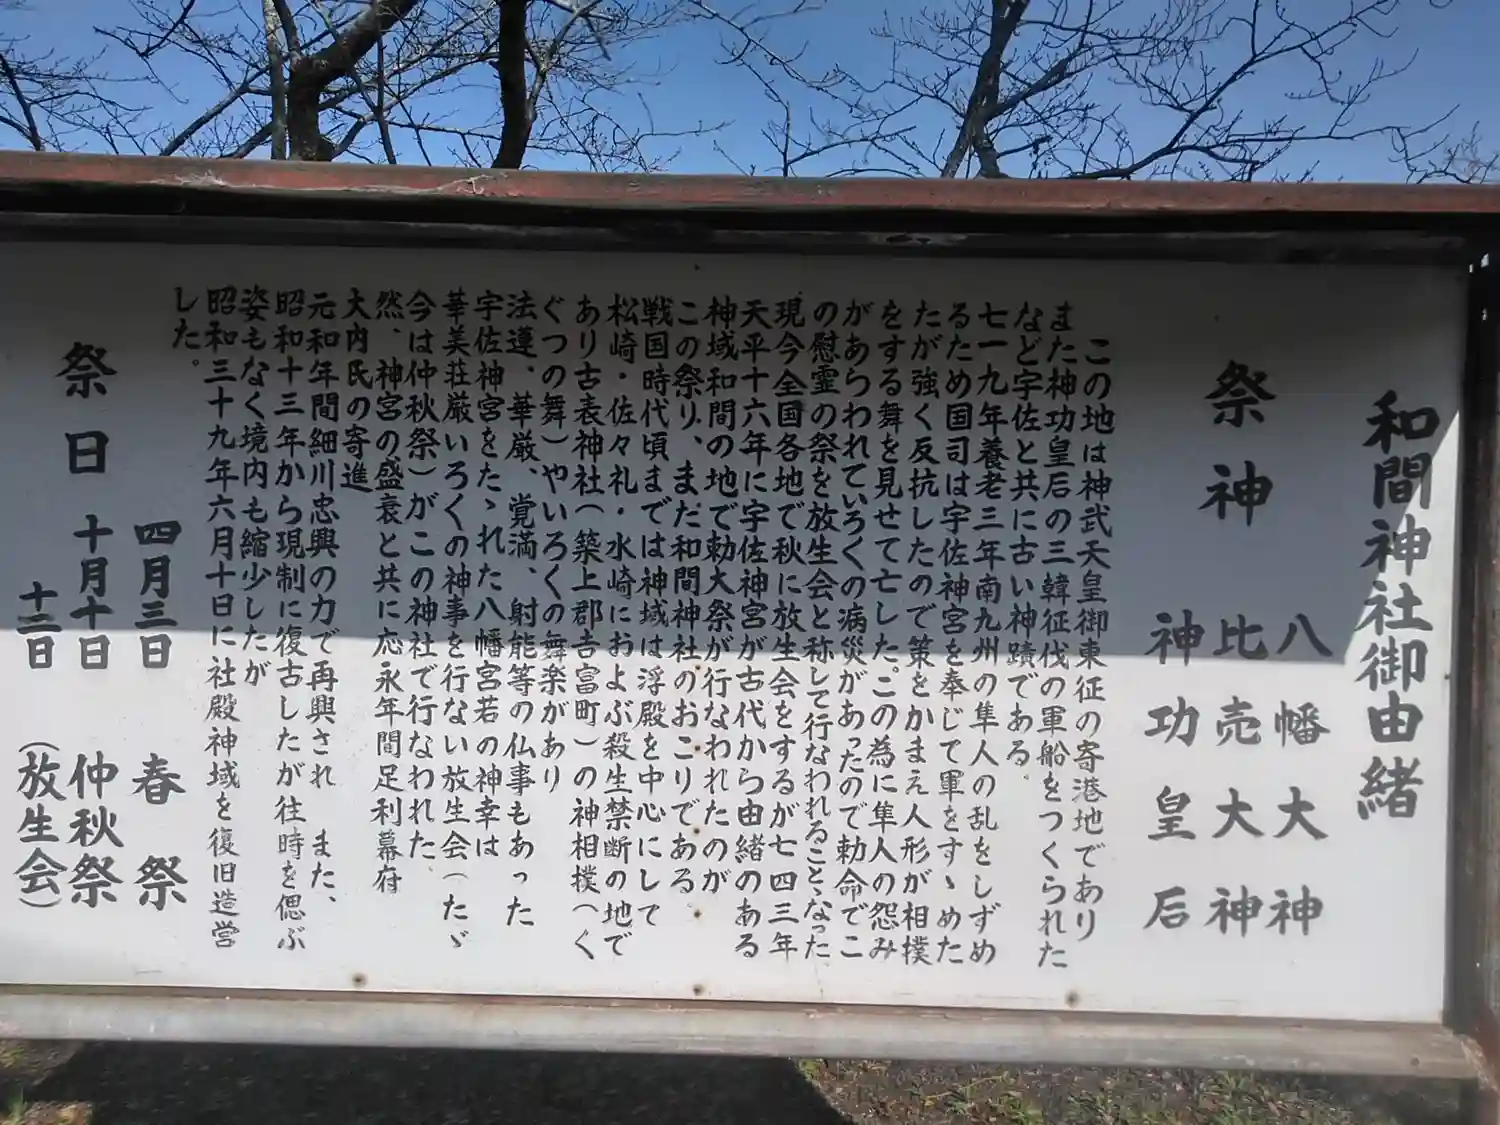 和間神社御由緒
祭神
八幡大神
比売大神
神功皇后
この地は神武天皇御東征の寄港地であり
また神功皇后の三韓征伐の軍船をつくられた
など宇佐と共に古い神蹟である。
七一九年養老三年南九州の隼人の乱をしずめ
るため国司は宇佐神宮を奉じて軍をすゝめた
たが強く反抗したので策をかまえ人形が相撲
をする舞を見せて亡した。この為に隼人の怨み
があらわれていろくの病災があったので勅命でこ
の慰霊の祭を放生会と称して行なわれることゝなった
現今全国各地で秋に放生会をするが七四三年
天平十六年に宇佐神宮が古代から由緒のある
神域和間の地で勅大祭が行なわれたのが
この祭り、まだ和間神社のおこりである。
戦国時代頃までは神域は浮殿を中心にして
松崎・佐々礼・水崎におよぶ殺生禁断の地で
あり古表神社(築上郡吉富町)の神相撲(く
ぐつの舞)やいろくの舞楽があり
法遵、華厳、覚満、射能等の仏事もあった
宇佐神宮をたゝれた八幡宮若の神幸は
華美荘厳いろくの神事を行ない放生会(たゞ
今は仲秋祭)がこの神社で行なわれた
然、神宮の盛衰と共に応永年間足利幕府
大内氏の寄進
元和年間細川忠興の力で再興され また、
昭和十三年から現制に復古したが往時を偲ぶ
姿もなく境内も縮少したが
昭和三十九年六月十日に社殿神域を復旧造営
した。
祭日
四月三日 春祭
十月十日 仲秋祭
十二日 (放生会)